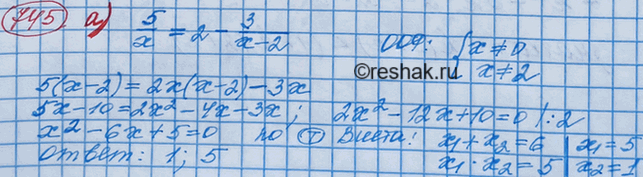 745 а) 5/x = 2 - 3/(x-2) ОДЗ: { x ≠ 0
x ≠ 2
©reshak.ru
5(x-2) = 2x(x-2) - 3x
5x - 10 = 2x² - 4x - 3x ; 2x² - 12x + 10 = 0 | :2
x² - 6x + 5 = 0 по Ⓣ Виета: x₁ + x₂ = 6 | x₁ = 5
Ответ: 1; 5 x₁ · x₂ = 5 | x₂ = 1